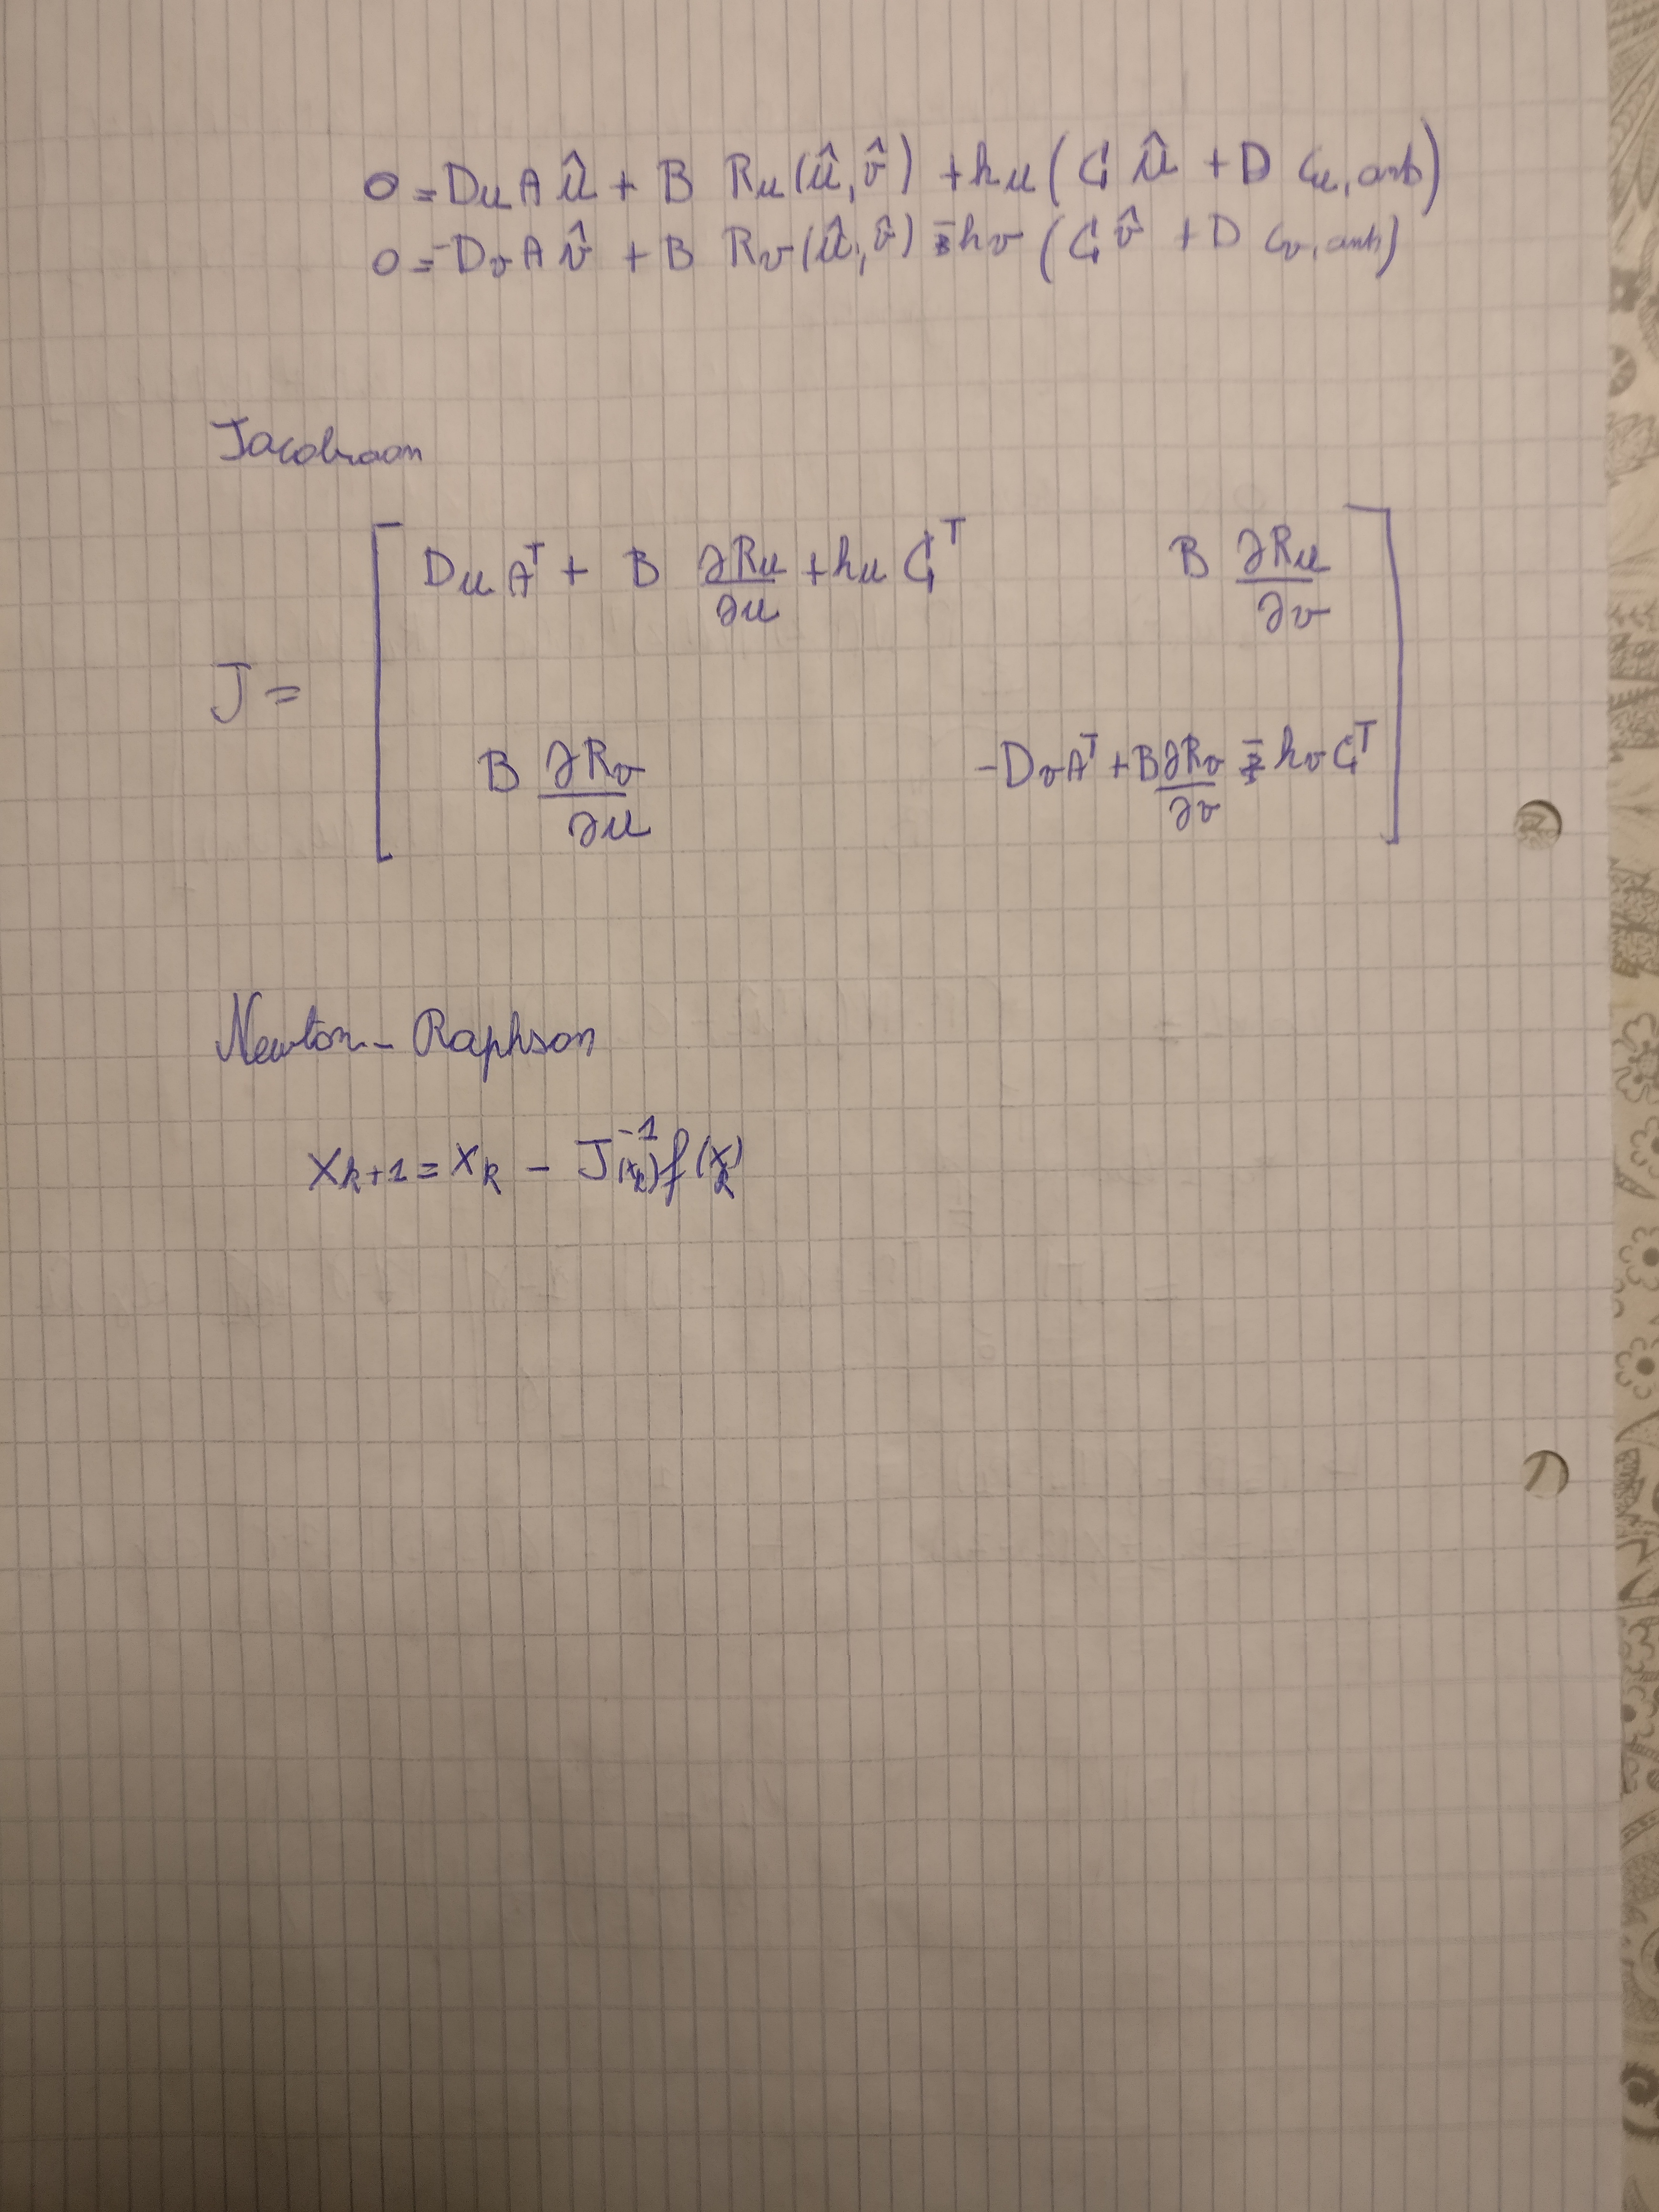 0 = Du A û + B Ru(û, v̂) + hu (C û + D Cu,amb)
0 = -Dv A v̂ + B Rv(û, v̂) - hv (C v̂ + D Cv,amb)
Jacobiaan
J = [ Du Aᵀ + B ∂Ru/∂u + hu Cᵀ    B ∂Ru/∂v
B ∂Rv/∂u    -Dv Aᵀ + B ∂Rv/∂v - hv Cᵀ ]
Newton-Raphson
xk+1 = xk - J⁻¹(xk) f(xk)